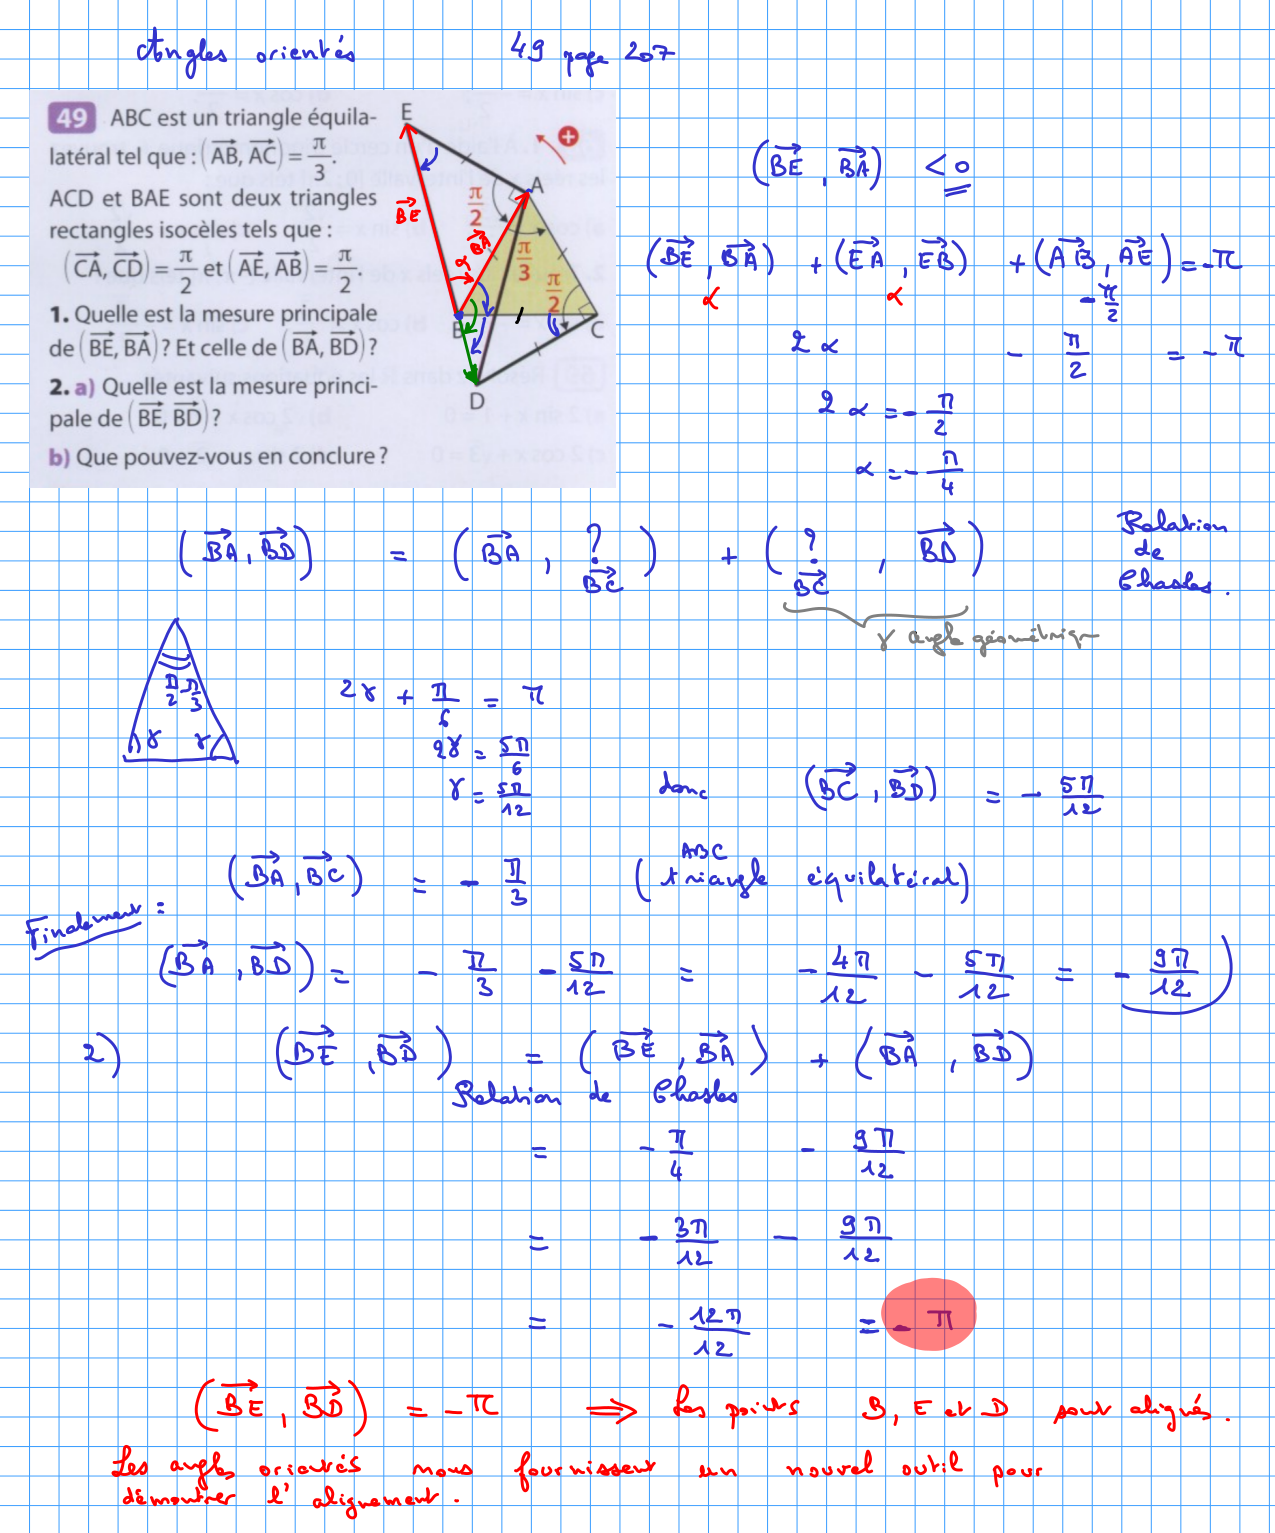 Angles orientés 49 page 207
49 ABC est un triangle équila-
latéral tel que : (AB, AC) = π/3.
ACD et BAE sont deux triangles
rectangles isocèles tels que :
(CA, CD) = π/2 et (AE, AB) = π/2.
1. Quelle est la mesure principale
de (BE, BA) ? Et celle de (BA, BD) ?
2. a) Quelle est la mesure princi-
pale de (BE, BD) ?
b) Que pouvez-vous en conclure ?
E
+
A
π/2
BE
BA
α
π/3
π/2
B
C
D
(BE, BA) < 0
(BE, BA) + (EA, EB) + (AB, AE) = -π
α α -π/2
2α - π/2 = -π
2α = -π/2
α = -π/4
(BA, BD) = (BA, ?) + (?, BD) Relation
de
BC BC Chasles.
γ angle géométrique
π/2 - π/3
γ γ
2γ + π/6 = π
2γ = 5π/6
γ = 5π/12 donc (BC, BD) = - 5π/12
(BA, BC) = - π/3 (ABC triangle équilatéral)
Finalement :
(BA, BD) = - π/3 - 5π/12 = - 4π/12 - 5π/12 = - 9π/12
2) (BE, BD) = (BE, BA) + (BA, BD)
Relation de Chasles
= - π/4 - 9π/12
= - 3π/12 - 9π/12
= - 12π/12 = - π
(BE, BD) = -π ⟹ Les points B, E et D sont alignés.
Les angles orientés nous fournissent un nouvel outil pour
démontrer l'alignement.